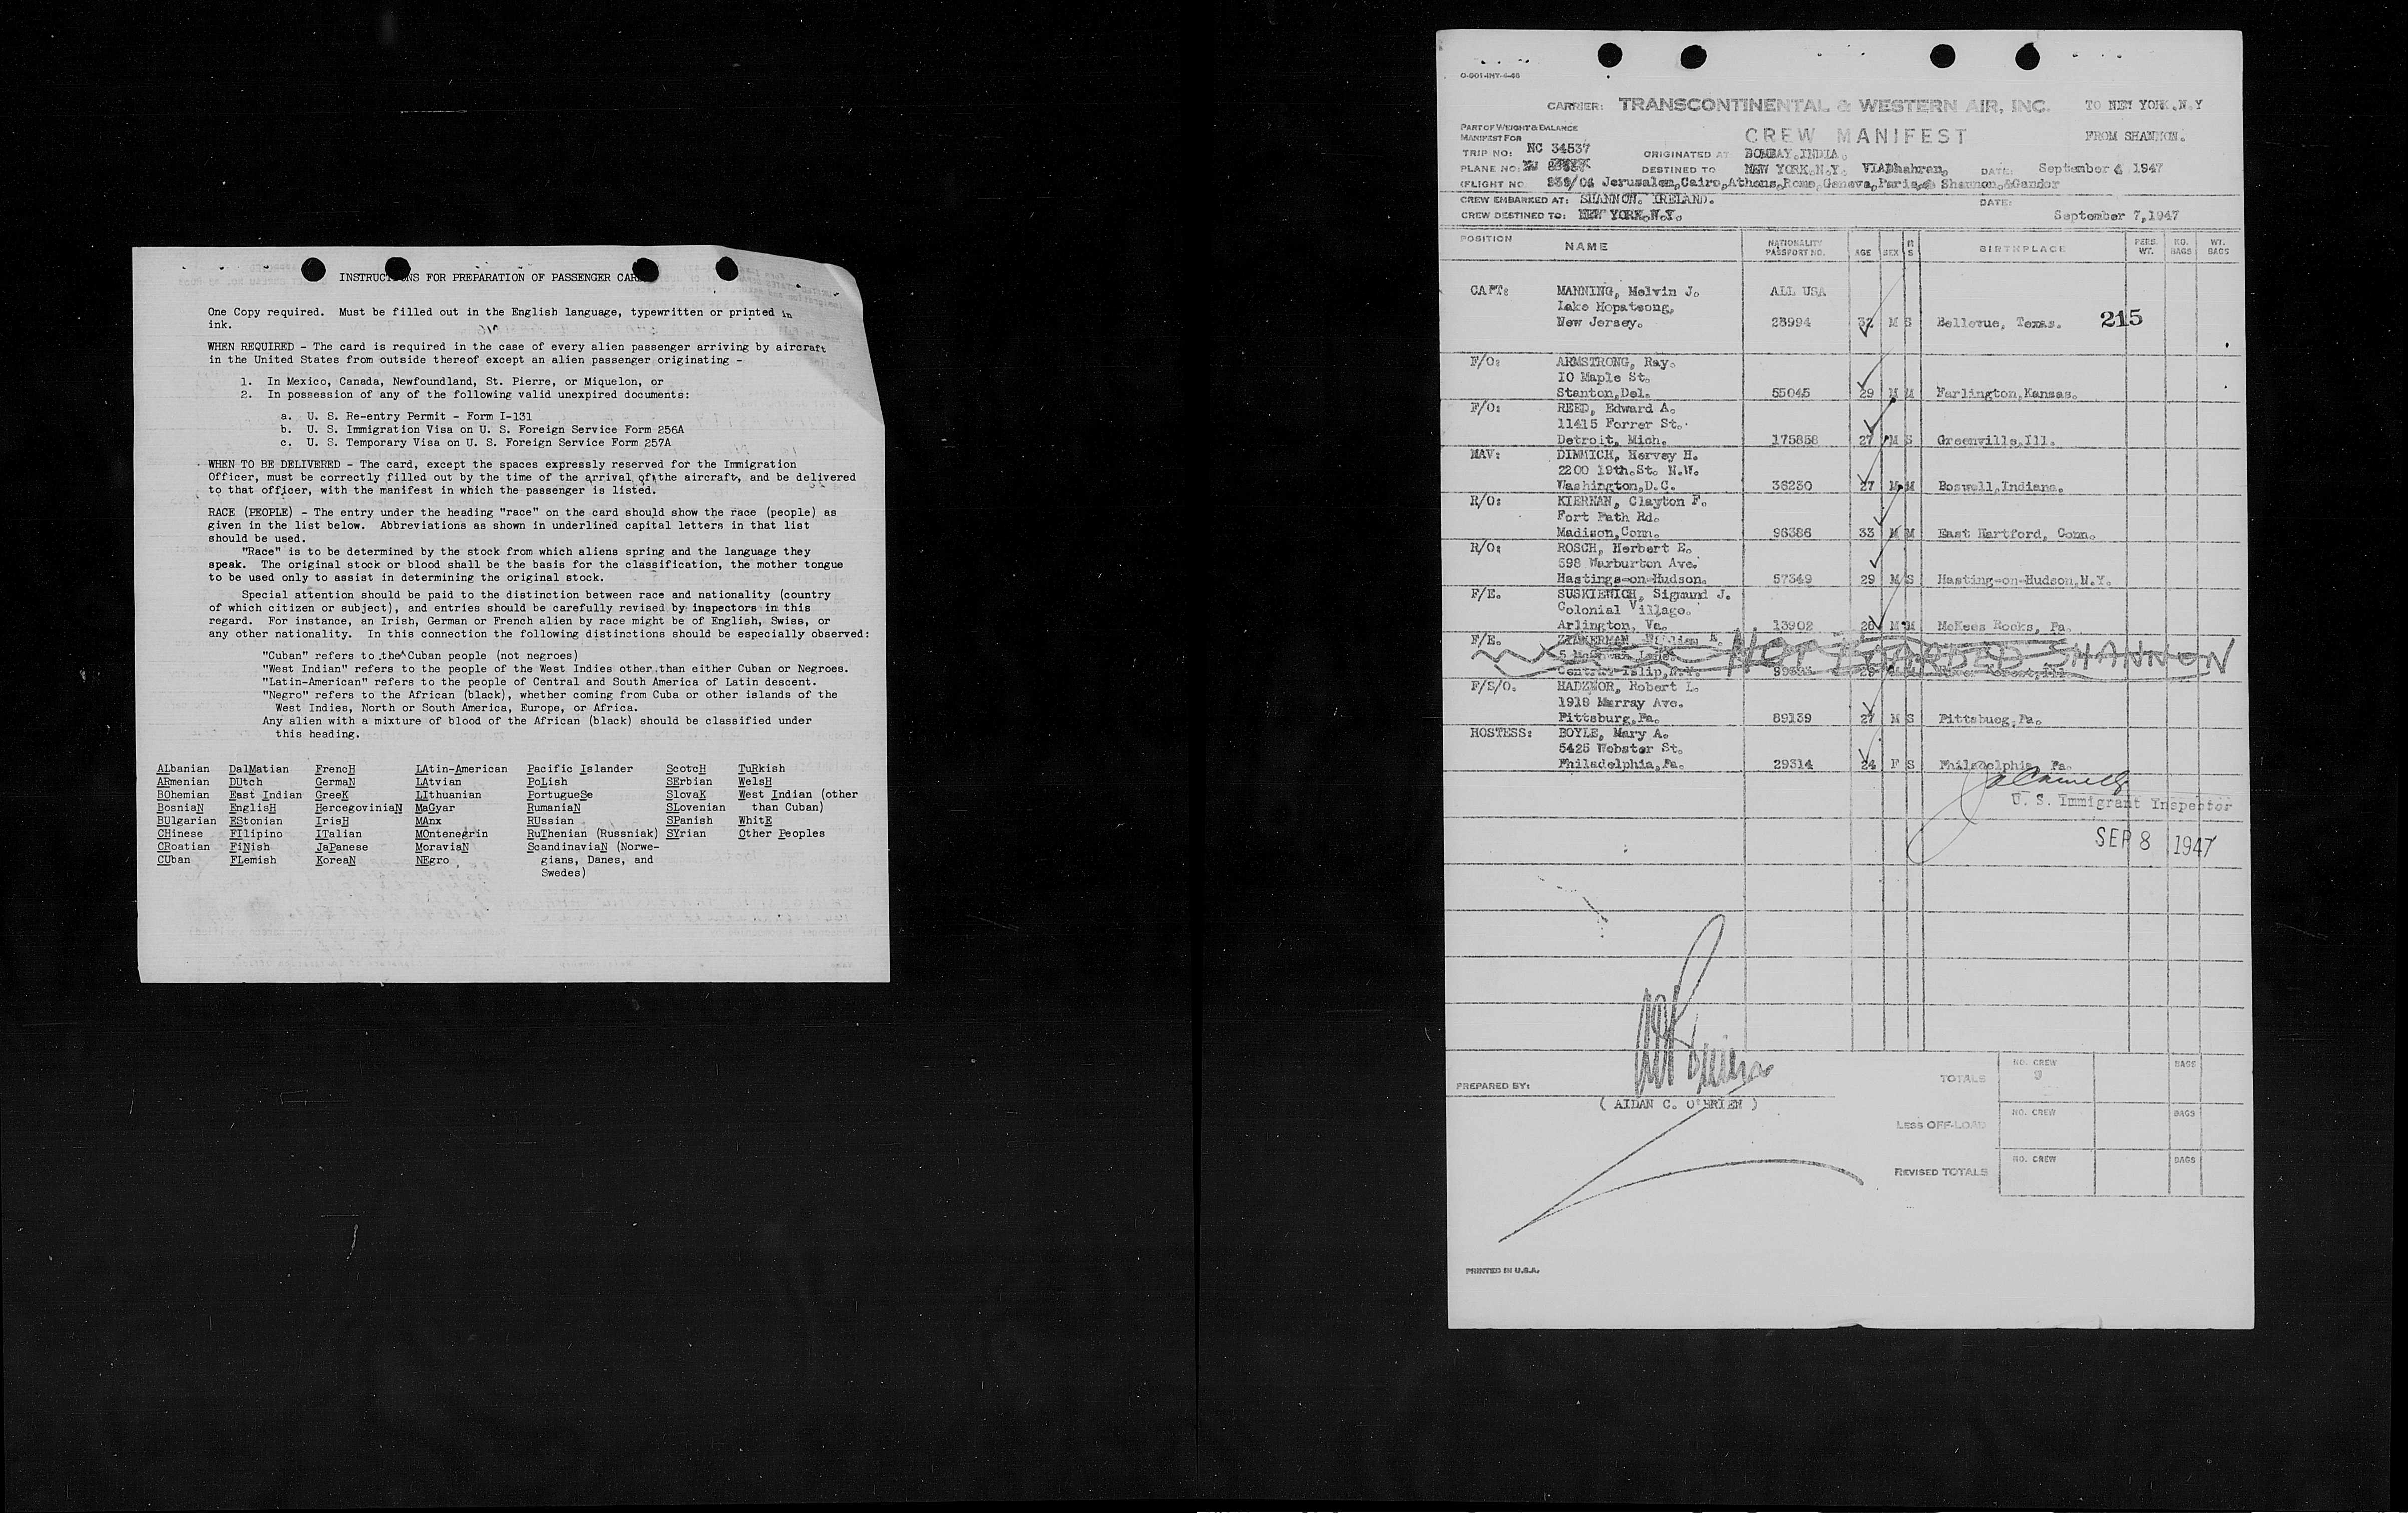 INSTRUCTIONS FOR PREPARATION OF PASSENGER CAR
One Copy required. Must be filled out in the English language, typewritten or printed in
ink.
WHEN REQUIRED - The card is required in the case of every alien passenger arriving by aircraft
in the United States from outside thereof except an alien passenger originating -
1. In Mexico, Canada, Newfoundland, St. Pierre, or Miquelon, or
2. In possession of any of the following valid unexpired documents:
a. U. S. Re-entry Permit - Form I-131
b. U. S. Immigration Visa on U. S. Foreign Service Form 256A
c. U. S. Temporary Visa on U. S. Foreign Service Form 257A
WHEN TO BE DELIVERED - The card, except the spaces expressly reserved for the Immigration
Officer, must be correctly filled out by the time of the arrival of the aircraft, and be delivered
to that officer, with the manifest in which the passenger is listed.
RACE (PEOPLE) - The entry under the heading "race" on the card should show the race (people) as
given in the list below. Abbreviations as shown in underlined capital letters in that list
should be used.
"Race" is to be determined by the stock from which aliens spring and the language they
speak. The original stock or blood shall be the basis for the classification, the mother tongue
to be used only to assist in determining the original stock.
Special attention should be paid to the distinction between race and nationality (country
of which citizen or subject), and entries should be carefully revised by inspectors in this
regard. For instance, an Irish, German or French alien by race might be of English, Swiss, or
any other nationality. In this connection the following distinctions should be especially observed:
"Cuban" refers to the Cuban people (not negroes)
"West Indian" refers to the people of the West Indies other than either Cuban or Negroes.
"Latin-American" refers to the people of Central and South America of Latin descent.
"Negro" refers to the African (black), whether coming from Cuba or other islands of the
West Indies, North or South America, Europe, or Africa.
Any alien with a mixture of blood of the African (black) should be classified under
this heading.
ALbanian DalMatian FrencH LAtin-American Pacific Islander ScotcH TuRkish
ARmenian DUtch GermaN LAtvian PoLish SErbian WelsH
BOhemian East Indian GreeK LIthuanian PortugueSe SlovaK West Indian (other
BosniaN EnglisH HercegoviniaN MaGyar RumaniaN SLovenian than Cuban)
BUlgarian EStonian IrisH MAnx RUssian SPanish WhitE
CHinese FIlipino ITalian MOntenegrin RuThenian (Russniak) SYrian Other Peoples
CRoatian FiNish JaPanese MoraviaN ScandinaviaN (Norwe-
CUban FLemish KoreaN NEgro gians, Danes, and
Swedes)
O-001-INT-4-46
CARRIER: TRANSCONTINENTAL & WESTERN AIR, INC. TO NEW YORK.N.Y
PART OF WEIGHT & BALANCE
MANIFEST FOR CREW MANIFEST FROM SHANNON.
TRIP NO: NC 34537 ORIGINATED AT BOMBAY.INDIA.
PLANE NO: DESTINED TO NEW YORK.N.Y. VIADhahran. DATE: September 4 1947
(FLIGHT NO. Jerusalem,Cairo,Athens,Rome,Geneva,Paris, Shannon,&Gander
CREW EMBARKED AT: SHANNON. IRELAND. DATE:
CREW DESTINED TO: NEW YORK.N.Y. September 7,1947
POSITION NAME NATIONALITY PASSPORT NO. AGE SEX M S BIRTHPLACE PERS. WT. NO. BAGS WT. BAGS
CAPT: MANNING, Melvin J. ALL USA
Lake Hopatcong,
New Jersey. 23994 32 M S Bellevue, Texas. 215
F/O: ARMSTRONG, Ray.
10 Maple St.
Stanton,Del. 55045 29 M M Farlington,Kansas.
F/O: REED, Edward A.
11415 Forrer St.
Detroit, Mich. 175858 27 M S Greenville,Ill.
NAV: DIMMICH, Hervey H.
2200 19th.St. N.W.
Washington,D.C. 36230 27 M M Boswell,Indiana.
R/O: KIERNAN, Clayton F.
Fort Path Rd.
Madison,Conn. 96386 33 M M East Hartford, Conn.
R/O: ROSCH, Herbert E.
598 Warburton Ave.
Hastings-on-Hudson. 57349 29 M S Hasting-on-Hudson,N.Y.
F/E. SUSKIEWICH, Sigmund J.
Colonial Village.
Arlington, Va. 13902 26 M M McKees Rocks, Pa.
F/E. ZIMMERMAN, William
NOT BOARDED SHANNON
Central Islip,N.Y.
F/S/O. HADZNOR, Robert L.
1918 Murray Ave.
Pittsburg,Pa. 89139 27 M S Pittsbueg,Pa.
HOSTESS: BOYLE, Mary A.
5425 Webster St.
Philadelphia,Pa. 29314 24 F S Philadelphia, Pa.
U. S. Immigrant Inspector
SEP 8 1947
NO. CREW BAGS
TOTALS 9
PREPARED BY:
( AIDAN C. O'BRIEN )
NO. CREW BAGS
LESS OFF-LOAD
NO. CREW BAGS
REVISED TOTALS
PRINTED IN U.S.A.